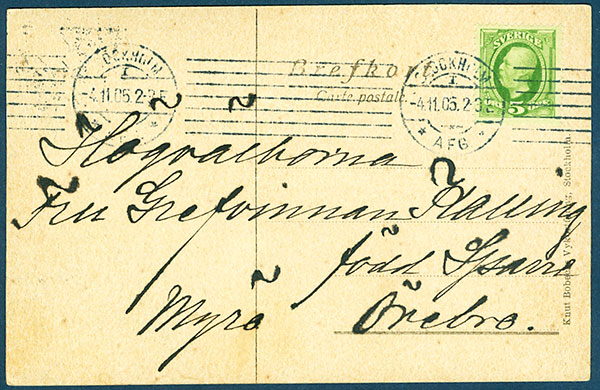 STOCKHOLM
1
-4.11.05.2-3 E
Brefkort
Carte postale
STOCKHOLM
1
-4.11.05.2-3 E
AFG
SVERIGE
5
Högvälborna
Fru Grefvinnan
född Sparre
Myrö Örebro.
Stockholm